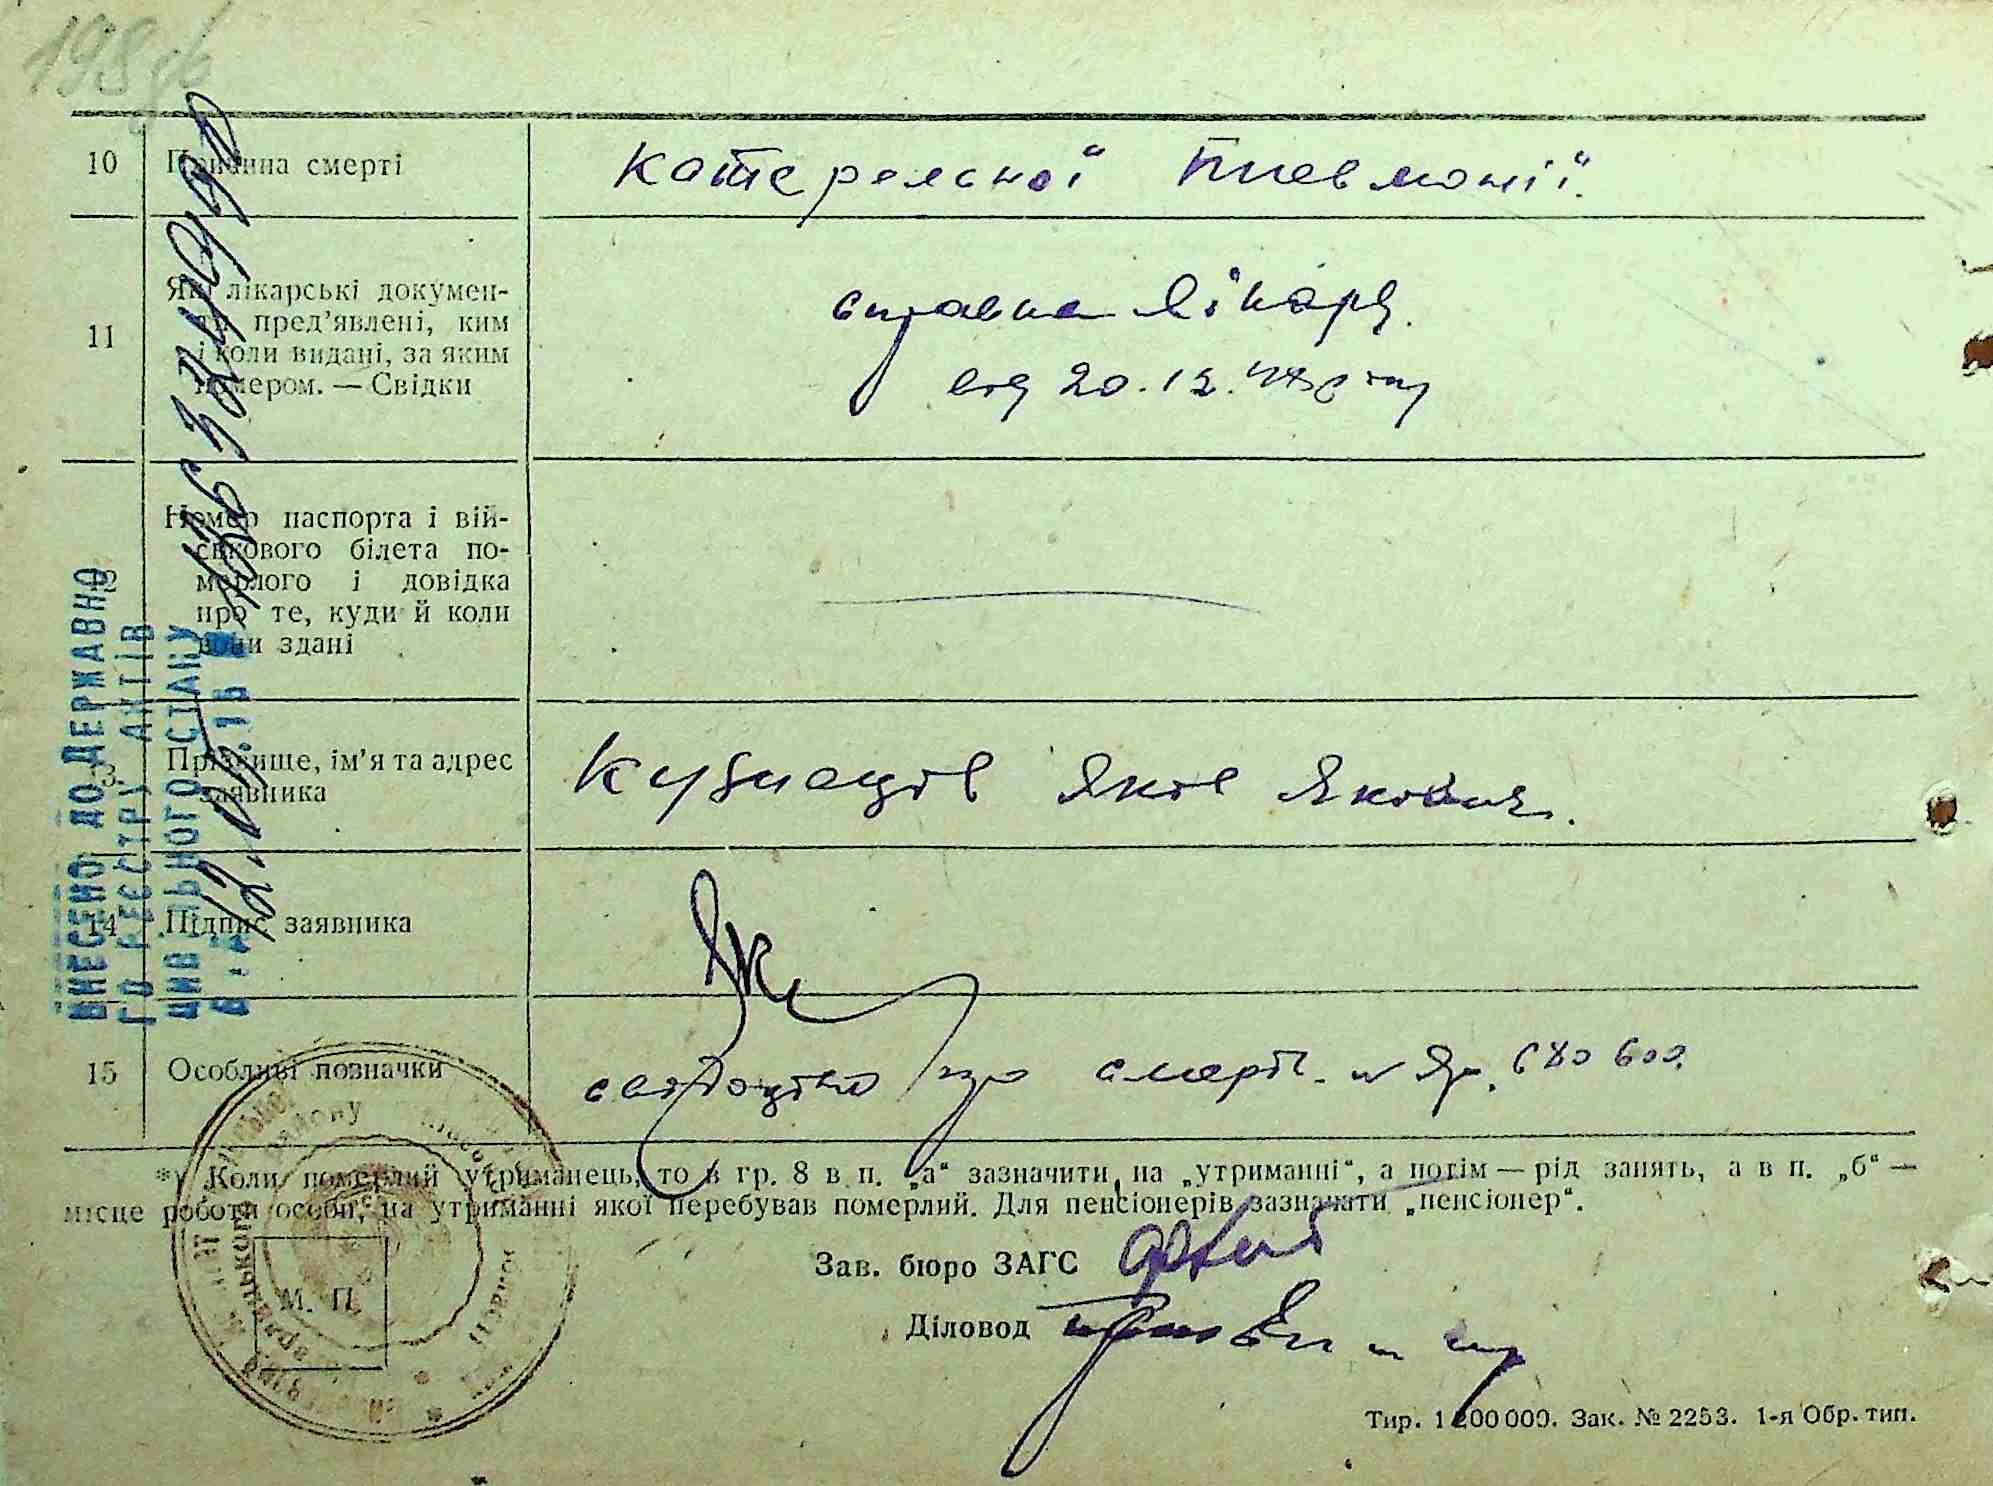 10 Причина смерті
катеральної пневмонії.
11 Які лікарські докумен-
ти пред'явлені, ким
і коли видані, за яким
номером. — Свідки
справка лікаря.
від 20.12.
12 Номер паспорта і вій-
ськового білета по-
мерлого і довідка
про те, куди й коли
вони здані
13 Прізвище, ім'я та адрес
заявника
Кузнеців Яків Якович.
14 Підпис заявника
15 Особливі позначки
свідоцтво про смерть. 680600.
*) Коли померлий утриманець, то в гр. 8 в п. „а“ зазначити „на утриманні“, а потім — рід занять, а в п. „б“ —
місце роботи особи, на утриманні якої перебував померлий. Для пенсіонерів зазначати „пенсіонер“.
Зав. бюро ЗАГС
М. П.
Діловод
Тир. 1 200 000. Зак. № 2253. 1-я Обр. тип.
ВНЕСЕНО ДО ДЕРЖАВНО
ГО РЕЄСТРУ АКТІВ
ЦИВІЛЬНОГО СТАНУ